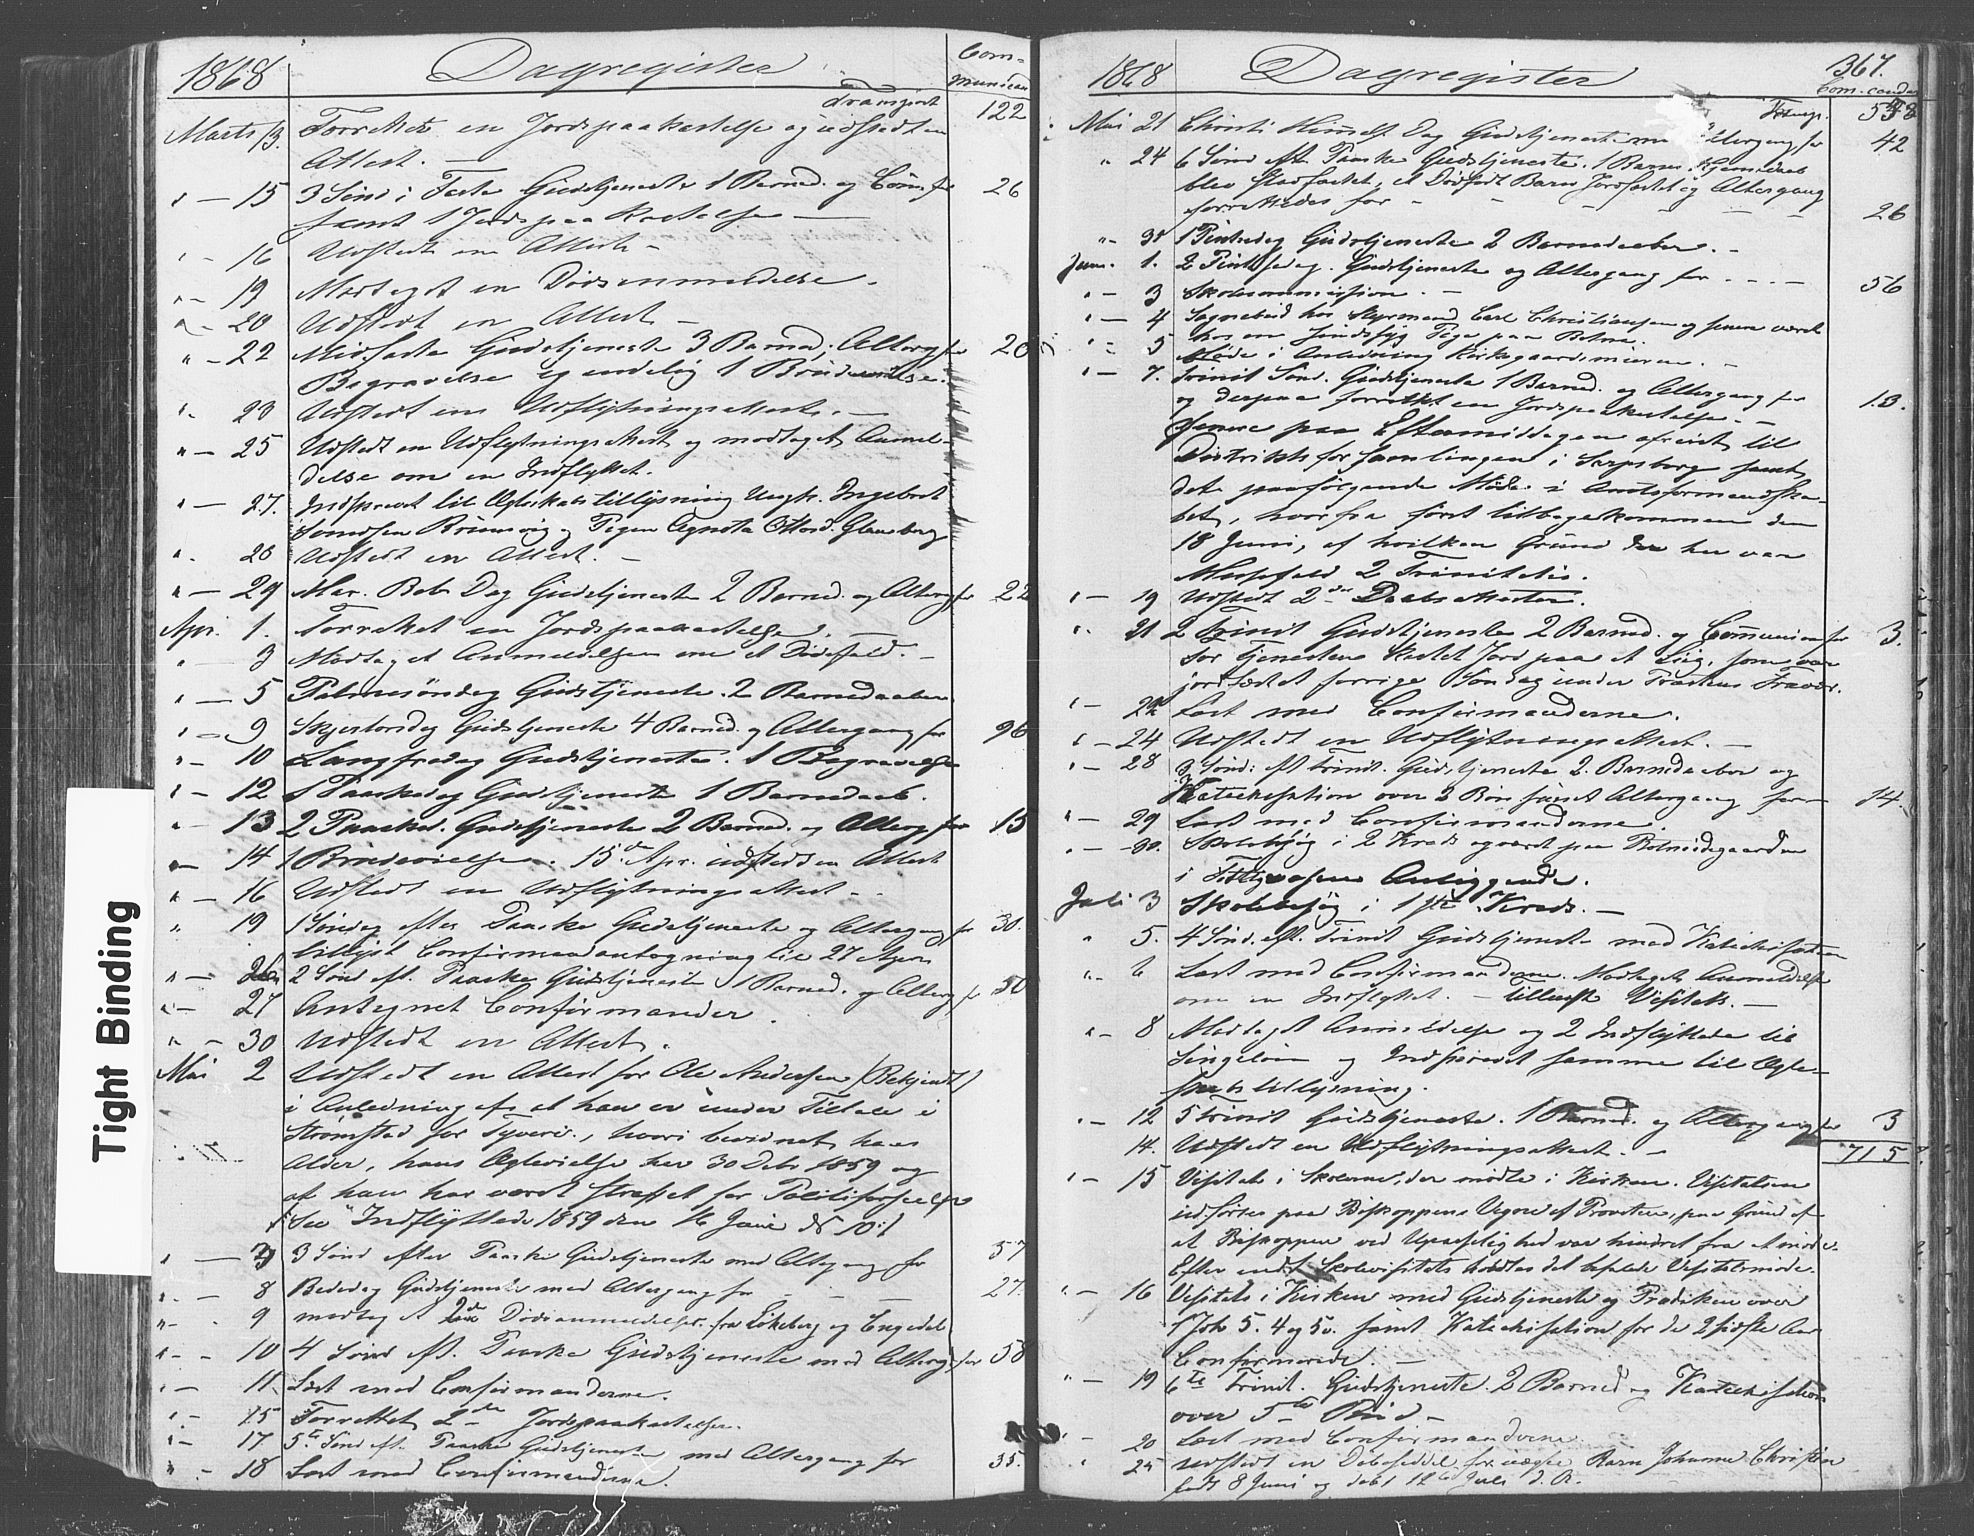 1868 Dagregister Com-
munican
Transport 122
Marts 13. Forrettet en Jordspaakastelse og udstedt en
Attest. —
" — 15 3 Sønd i Faste Gudstjeneste 1 Barned. og Com. for 26
samt 1 Jordspaakastelse —
" — 16 Udstedt en Attest. —
" — 19 Modtaget en Dødsanmeldelse.
" — 20 Udstedt en Attest —
" — 22 Midfaste Gudstjeneste 3 Barned; Alterg for 20
Begravelse og endelig 1 Brudevielse.
" 23 Udstedt en Udflytningsattest. —
" — 25 Udstedt en Udflytningsattest og modtaget Anmel-
delse om en Indflyttet.
" — 27. Indskrevet til Ægteskabs tillysning Ungk. Ingebret
og Pigen
" 28 Udstedt en Attest. —
" — 29 Mar. Beb. Dag Gudstjeneste 2 Barned. og Alterg for 22
Apr. 1. Forrettet en Jordspaakastelse. —
" 3 Modtaget Anmeldelse om et Dødsfald. —
" — 5 Palmesøndag Gudstjeneste. 2 Barnedaaber
" — 9 Skjertorsdag Gudstjeneste 4 Barned. og Altergang for 96
" — 10 Langfredag Gudstjeneste. 1 Begravelse
" — 12 1 Paaskedag Gudstjeneste 1 Barnedaab.
" — 13 2 Paasked. Gudstjeneste 2 Barned. og Alterg for 15
" — 14 1 Brudevielse. 15de Apr. udstedt en Attest
" — 16 Udstedt en Udflytningsattest. —
" 19 1 Søndag efter Paaske Gudstjeneste og Altergang for 30.
tillyst Confirmandantegning til 27 April
" — 26 2 Sønd eft. Paaske Gudstjeneste 1 Barned. og Alterg for 50
" — 27 Antegnet Confirmander.
" — 30 Udstedt en Attest.
Mai 2 Udstedt en Attest for Ole Andersen
i Anledning af at han er under Tiltale i
Strømstad for Tyveri, hvori bevidnet hans
Alder, hans Ægtevielse her 30 Debr 1859 og
at han har været straffet for Politiforseelse
See Indflyttede 1859 den 16 Juni
" — 3 3 Sønd efter Paaske Gudstjeneste med Altergang for 57
" — 8 Bededag Gudstjeneste med Altergang for — — — 27.
" — 9 modtaget 2de Dødsanmeldelser fra Løkeberg og Engedal
" — 10 4 Sønd eft. Paaske Gudstjeneste med Alterg for 58
" — 11. Læst med Confirmanderne.
" — 15 Forrettet 2de Jordspaakastelser.
" — 17 5te Sønd eft. Paaske Gudstjeneste med Altergang for 35.
" — 18 Læst med Confirmanderne.
1868 Dagregister 367.
Com.-cander
Transp.
Mai 21 Christi Himmelf. Dag Gudstjeneste med Altergang for 42
" 24 6 Sønd eft. Paaske Gudstjeneste. 1 Barns Hjemmedaab
blev stadfæstet, et Dødfødt Barn Jordfæstet og Altergang
forrettedes for — — — — — 26
" — 31 1 Pintsedag Gudstjeneste 2 Barnedaaber. —
Juni. 1. 2 Pintsedag. Gudstjeneste og Altergang for — — 56
" — 3 Skolecommission. —
" — 4 Sognebud hos Styrmand Carl Christiansen og senere været
hos en sindssyg Pige paa
" — 5 Møde i Anledning —
" — 7. Trinit Sønd. Gudstjeneste 1 Barned. og Altergang for 13.
og derpaa forrettet en Jordspaakastelse. —
Senere paa Eftermiddagen afreist til
Distriktsforsamlingen i Sarpsborg samt
det paafølgende Møde i Amtsformandska-
bet, hvorfra først tilbagekommen den
18 Juni, af hvilken Grund der her var
Messefald 2 Trinitatis.
" — 19 Udstedt 2de Daabsattester.
" 21 2 Trinit Gudstjeneste 2 Barned. og Communion for 3.
før Tjenesten kastet Jord paa et Liig, som var
jordfæstet forrige Søndag under Præstens Fravær.
" — 22 Læst med Confirmanderne.
" — 24 Udstedt en Udflytningsattest. —
" — 28 3 Sønd: eft Trinit. Gudstjeneste 2. Barnedaaber og
Katechisation over 3 Bøn samt Altergang for — 14.
" — 29 Læst med Confirmanderne.
" — 30. Skolebesøg i 2 Kreds og været paa
i Anliggende.
Juli 3 Skolebesøg i 1ste Kreds. —
" 5. 4 Sønd. eft. Trinit Gudstjeneste med Katechisation
" 6 Læst med Confirmanderne. Modtaget Anmeldelse
om en Indflyttet. — tillyst Visitats. —
" — 8 Modtaget Anmeldelse og 2 Indflyttede til
og Indskrevet samme til Ægte-
skabs tillysning.
" — 12 5 Trinit Gudstjeneste. 1 Barned. og Altergang for 3
14. Udstedt en Udflytningsattest. — 715
" — 15 Visitats i Skolerne, der mødte i Kirken. Visitatsen
udførtes paa Biskoppens Vegne af Provsten, paa Grund af
at Biskoppen ved Upasselighed var hindret fra at møde.
Efter endt Skolevisitats holdtes det befalede Visitatsmøde.
" — 16 Visitats i Kirken med Gudstjeneste og Prædiken over
1 Joh 5. 4 og 5v. samt Katechisation for de 2 sidste Aars
Confirmerede. —
" — 19 6te Trinit. Gudstjeneste. 2 Barned og Katechisation
over 5te Bud —
" — 20 Læst med Confirmanderne
" 25 Udstedt en Døbeseddel for uægte Barn Johanne Christine
født 8 Juni og døbt 12te Juli d. A.
Tight Binding